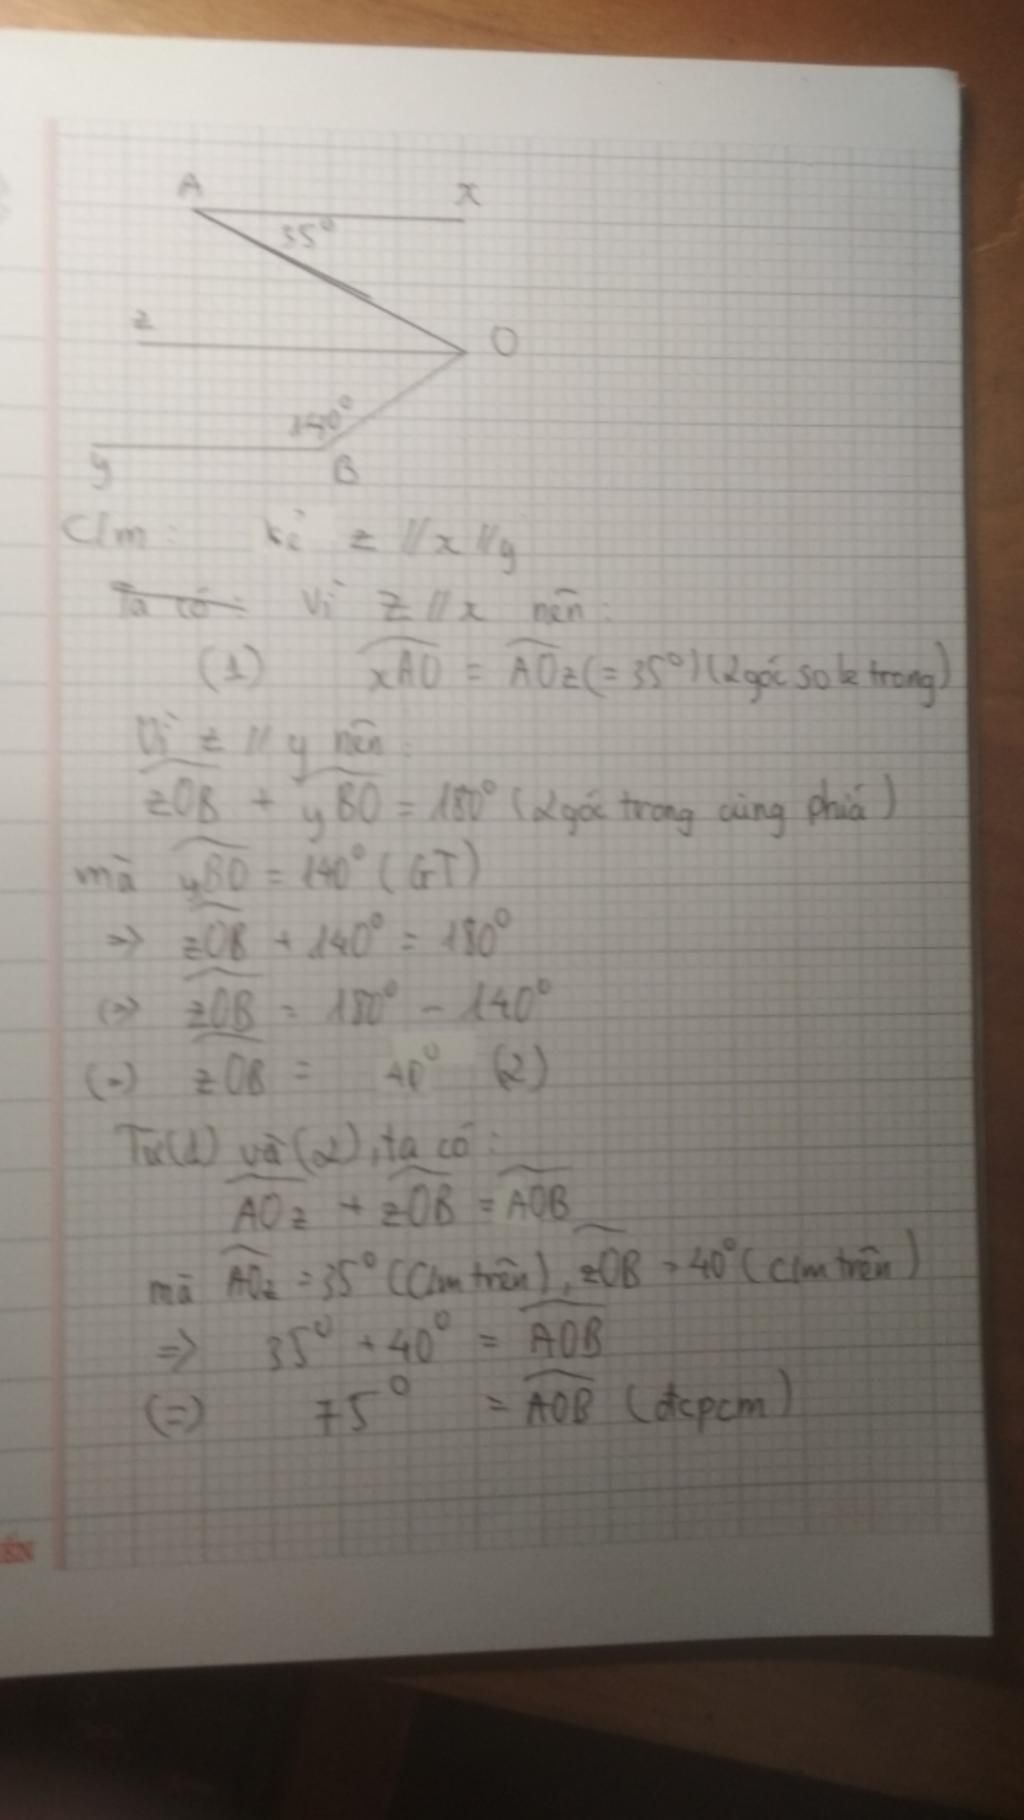 A x
35°
z O
140°
y B
C/m: kẻ z // x // y
Ta có: Vì z // x nên:
(1) xAO = AOz (= 35°) (2 góc so le trong)
Vì z // y nên:
zOB + yBO = 180° (2 góc trong cùng phía)
mà yBO = 140° (GT)
=> zOB + 140° = 180°
(=) zOB = 180° - 140°
(=) zOB = 40° (2)
Từ (1) và (2), ta có:
AOz + zOB = AOB
mà AOz = 35° (C/m trên), zOB = 40° (C/m trên)
=> 35° + 40° = AOB
(=) 75° = AOB (đcpcm)